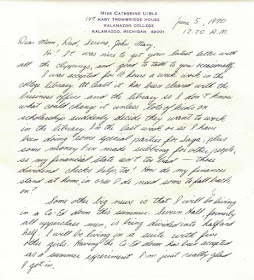 MISS CATHERINE UIBLE
147 MARY TROWBRIDGE HOUSE
KALAMAZOO COLLEGE
KALAMAZOO, MICHIGAN 49001
June 5, 1970
12:20 A.M.
Dear Mom, Dad, John, Mary,
Hi! It was nice to get your latest letter with
all the clippings, and great to talk to you occasionally.
I was accepted for 10 hours a week work in the
college library. At least it has been cleared with the
financial office and the library so I don't know
what could change it unless lots of kids on
scholarship suddenly decide they want to work
in the library. In the last week or so I have
been doing some special parties for Saga, plus
some money I've made subbing for other people,
so my financial state isn't too bad - those
dividend checks help, too! How do my finances
stand at home, in case I do need some to fall back
on?
Some other big news is that I will be living
in a Co-Ed dorm this summer. Severn Hall, formerly
all upperclass men, is being divided into half and
half. I will be living in a suite with five
other girls. Having the Co-Ed dorm has been accepted
as a summer experiment. I'm just really glad
I got in.